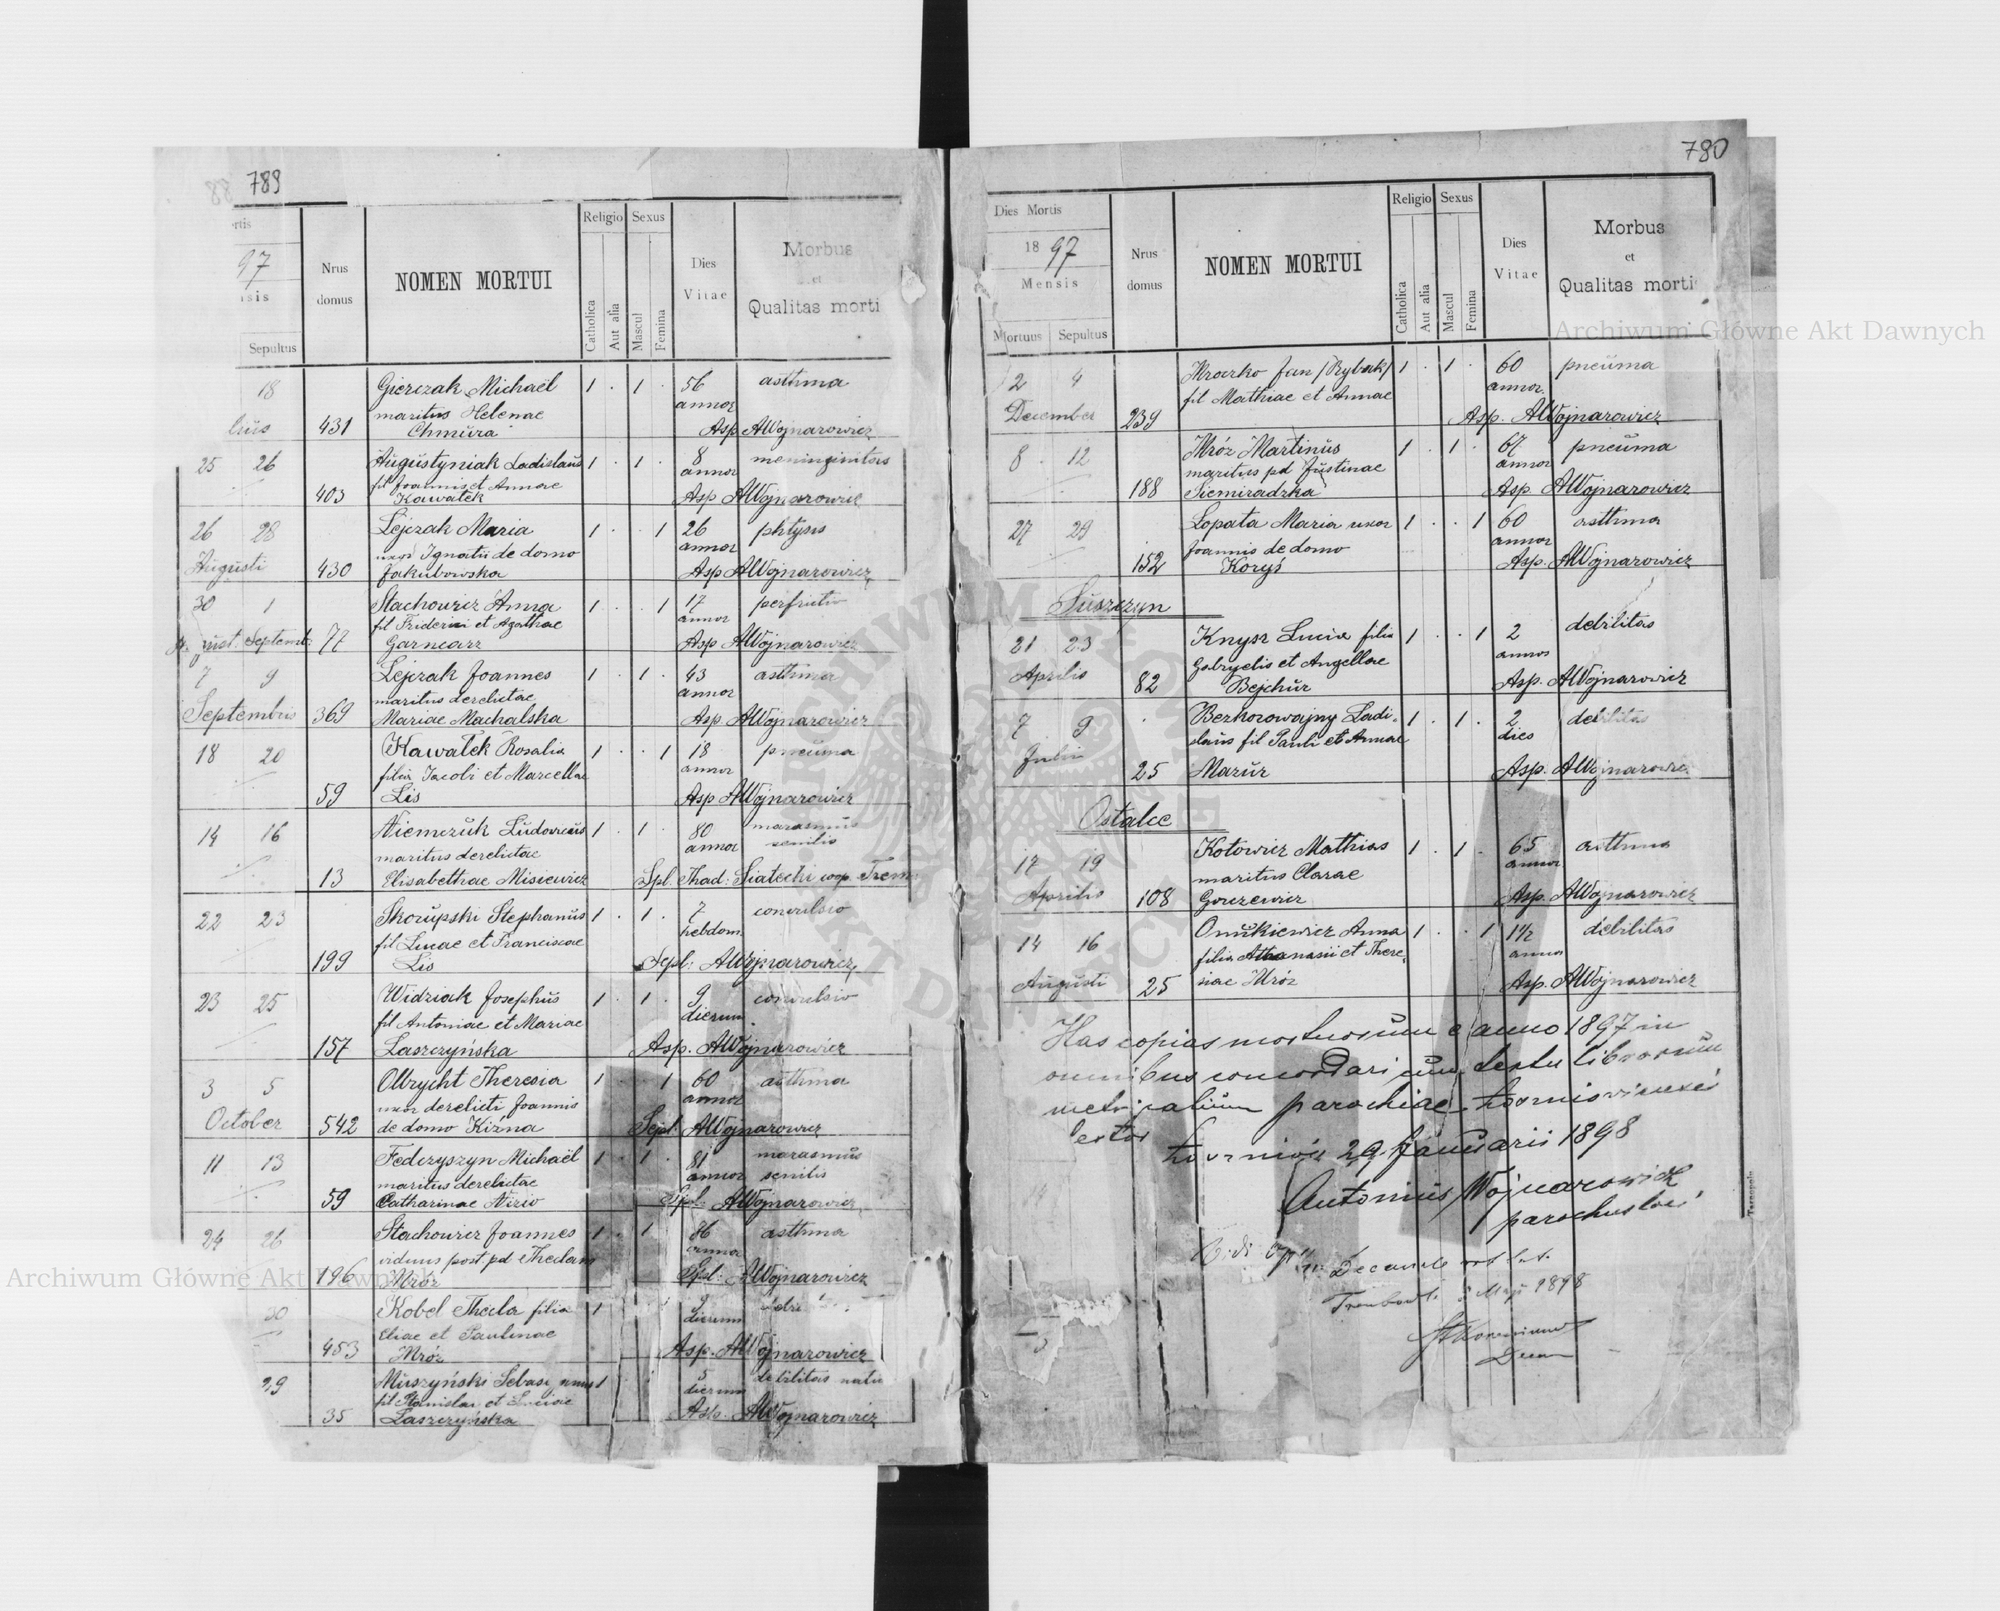 789
ortis
97
nsis
Sepultus
Nrus
domus
NOMEN MORTUI
Religio
Catholica
Aut alia
Sexus
Mascul
Femina
Dies
Vitae
Morbus
et
Qualitas morti
18
431
Gierczak Michaël
maritus Helenae
Chmura
1 . 1 .
56
annor
asthma
Asp AWojnarowicz
25 26
403
Augustyniak Ladislaus
fil Joannis et Annae
Kawałek
1 . 1 .
8
annor
meninginitas
Asp AWojnarowicz
26 28
Augusti
430
Lejczak Maria
uxor Ignatii de domo
Jakubowska
1 . . 1
26
annor
phtysis
Asp AWojnarowicz
30 1
Septemb.
77
Stachowicz Anna
fil Friderici et Agathae
Garncarz
1 . . 1
17
annor
Asp AWojnarowicz
7 9
Septembris
369
Lejczak Joannes
maritus derelictae
Mariae Machalska
1 . 1 .
43
annor
asthma
Asp. AWojnarowicz
18 20
59
Kawałek Rosalia
filia Jacobi et Marcellae
Lis
1 . . 1
18
annor
pneuma
Asp AWojnarowicz
14 16
13
Niemczuk Ludovicus
maritus derelictae
Elisabethae Misiewicz
1 . 1 .
80
annor
marasmus
senilis
Spl. Thad: Siatecki coop. Trem
22 23
199
Skorupski Stephanus
fil Lucae et Franciscae
Lis
1 . 1 .
7
hebdom
convulsio
Sepl: AWojnarowicz
23 25
157
Widziak Josephus
fil Antoniae et Mariae
Laszczyńska
1 . 1 .
9
dierum
convulsio
Asp. AWojnarowicz
3 5
October
542
Olbrycht Theresia
uxor derelicti Joannis
de domo Kizna
1 . . 1
60
annor
asthma
Sepl. AWojnarowicz
11 13
59
Fedczyszyn Michaël
maritus derelictae
Catharinae Nizio
1 . 1 .
81
annor
marasmus
senilis
Spl: AWojnarowicz
24 26
196
Stachowicz Joannes
viduus post pd Theclam
Mróz
1 . 1
86
annor
asthma
Spl: AWojnarowicz
30
453
Kobel Thecla filia
Eliae et Paulinae
Mróz
1
9
dierum
Asp. AWojnarowicz
29
35
Muszyński
fil Stanislai et Luciae
Laszczyńska
1
5
dierum
debilitas
Asp. AWojnarowicz
780
Dies Mortis
1897
Mensis
Mortuus Sepultus
Nrus
domus
NOMEN MORTUI
Religio
Catholica
Aut alia
Sexus
Mascul
Femina
Dies
Vitae
Morbus
et
Qualitas morti
2 4
December
239
Mrozko Jan /Rybak/
fil Mathiae et Annae
1 . 1 .
60
annor
pneuma
Asp. AWojnarowicz
8 . 12
188
Mróz Martinus
maritus pd Justinae
Siemiradzka
1 . 1 .
67
annor
pneuma
Asp. AWojnarowicz
27 29
152
Lopata Maria uxor
Joannis de domo
Koryś
1 . . 1
60
annor
asthma
Asp. AWojnarowicz
Suszczyn
21 23
Aprilis
82
Knysz Lucia filia
Gabryelis et Angellae
Bejchur
1 . . 1
2
annos
debilitas
Asp. AWojnarowicz
7 9
Julii
25
Bezkorowajny Ladi-
slaus fil Pauli et Annae
Mazur
1 . 1 .
2
dies
debilitas
Asp. AWojnarowic
Ostalce
17 19
Aprilis
108
Kotowicz Mathias
maritus Clarae
Gouzewicz
1 . 1 .
65
annor
asthma
Asp. AWojnarowicz
14 16
Augusti
25
Onukiewicz Anna
filia Athanasii et There-
siae Mróz
1 . . 1
1 1/2
anno
debilitas
Asp. AWojnarowicz
Has copias mortuorum e anno 1897 in
omnibus concordari cum textu librorum
metricalium parochiae
testor
29. Januarii 1898
Antonius Wojnarowicz
parochus loci
Decan
Trembowla 5 Maji 1898
Decan
Tarnopolo
Archiwum Główne Akt Dawnych
Archiwum Główne Akt Dawnych
ARCHIWUM GŁÓWNE AKT DAWNYCH